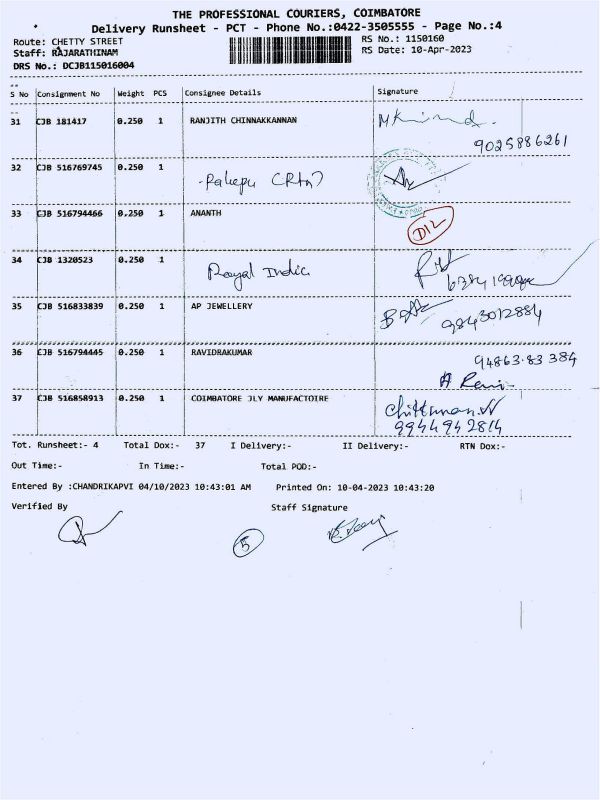 THE PROFESSIONAL COURIERS, COIMBATORE
Delivery Runsheet - PCT - Phone No.:0422-3505555 - Page No.:4
Route: CHETTY STREET RS No.: 1150160
Staff: RAJARATHINAM RS Date: 10-Apr-2023
DRS No.: DCJB115016004
S No Consignment No Weight PCS Consignee Details Signature
31 CJB 181417 0.250 1 RANJITH CHINNAKKANNAN
9025886261
32 CJB 516769745 0.250 1 (Rtn)
33 CJB 516794466 0.250 1 ANANTH D12
34 CJB 1320523 0.250 1 Royal India
35 CJB 516833839 0.250 1 AP JEWELLERY 9843012884
36 CJB 516794445 0.250 1 RAVIDRAKUMAR 94863.83 384
37 CJB 516858913 0.250 1 COIMBATORE JLY MANUFACTOIRE
9944942814
Tot. Runsheet:- 4 Total Dox:- 37 I Delivery:- II Delivery:- RTN Dox:-
Out Time:- In Time:- Total POD:-
Entered By :CHANDRIKAPVI 04/10/2023 10:43:01 AM Printed On: 10-04-2023 10:43:20
Verified By Staff Signature
5